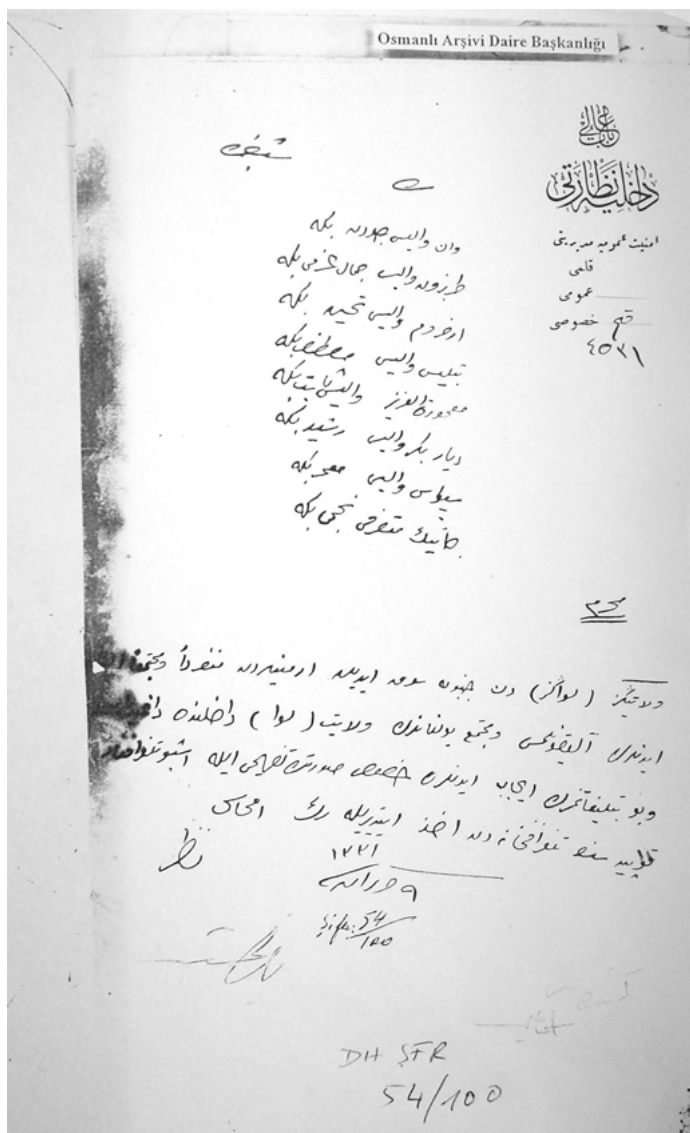 Osmanlı Arşivi Daire Başkanlığı
باب عالی
داخلیه نظارتی
امنیت عمومیه مدیریتی
قلمی
عمومی
خصوصی
٤٥٣١
شفره
وان والیسی جودت بكه
طربزون والیسی جمال عزمی بكه
ارضروم والیسی تحسین بكه
بتلیس والیسی مصطفی بكه
معمورة العزیز والیسی ثابت بكه
دیاربكر والیسی رشید بكه
سیواس والیسی معمر بكه
جانیك متصرفی نجمی بكه
ولایتكز (لواكز) دن جنوبه سوق ایدیلن ارمنیلردن منفرداً
ایدنلرك آلیقونلمسی ومجتمع بولنانلرك ولایت (لوا) داخلنده
وبو تبلیغاتمزك ایجاب ایدنلره خصوصی صورتده ایله اشبو
دن اخذ ایتدیریله رك امحاسی
ناظر
١٣٣١
٩ حزیران
Şifre: 54/100
DH ŞFR
54/100